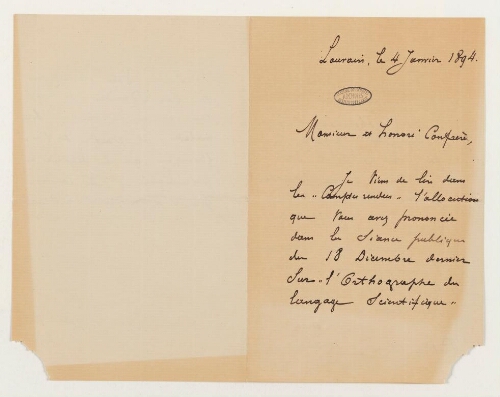 Louvain, le 4 Janvier 1894.
Monsieur et honoré Confrère,
Je viens de lire dans
les „Comptes rendus„ l'allocution
que Vous avez prononcée
dans la Séance publique
du 18 Décembre dernier
Sur „l'Orthographe du
langage Scientifique„